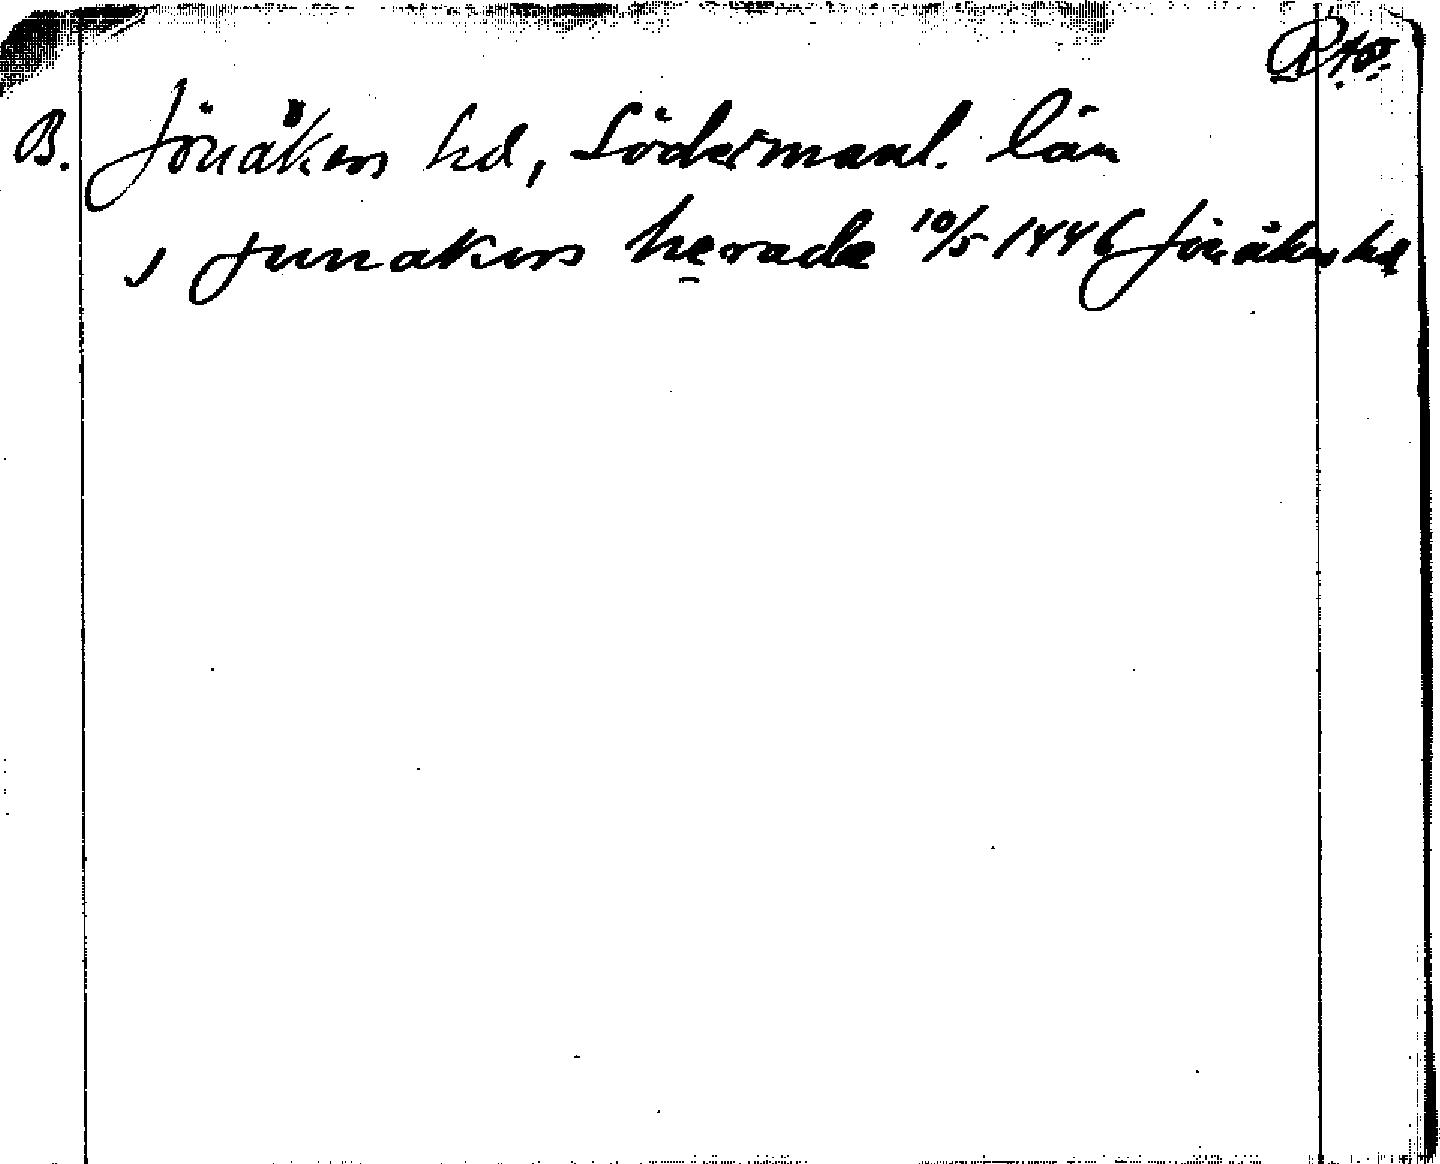 Rto.
B. Jönåkers hd, Södermanl. län
, Junakers herade 10/5 1446 Jönåkers hd